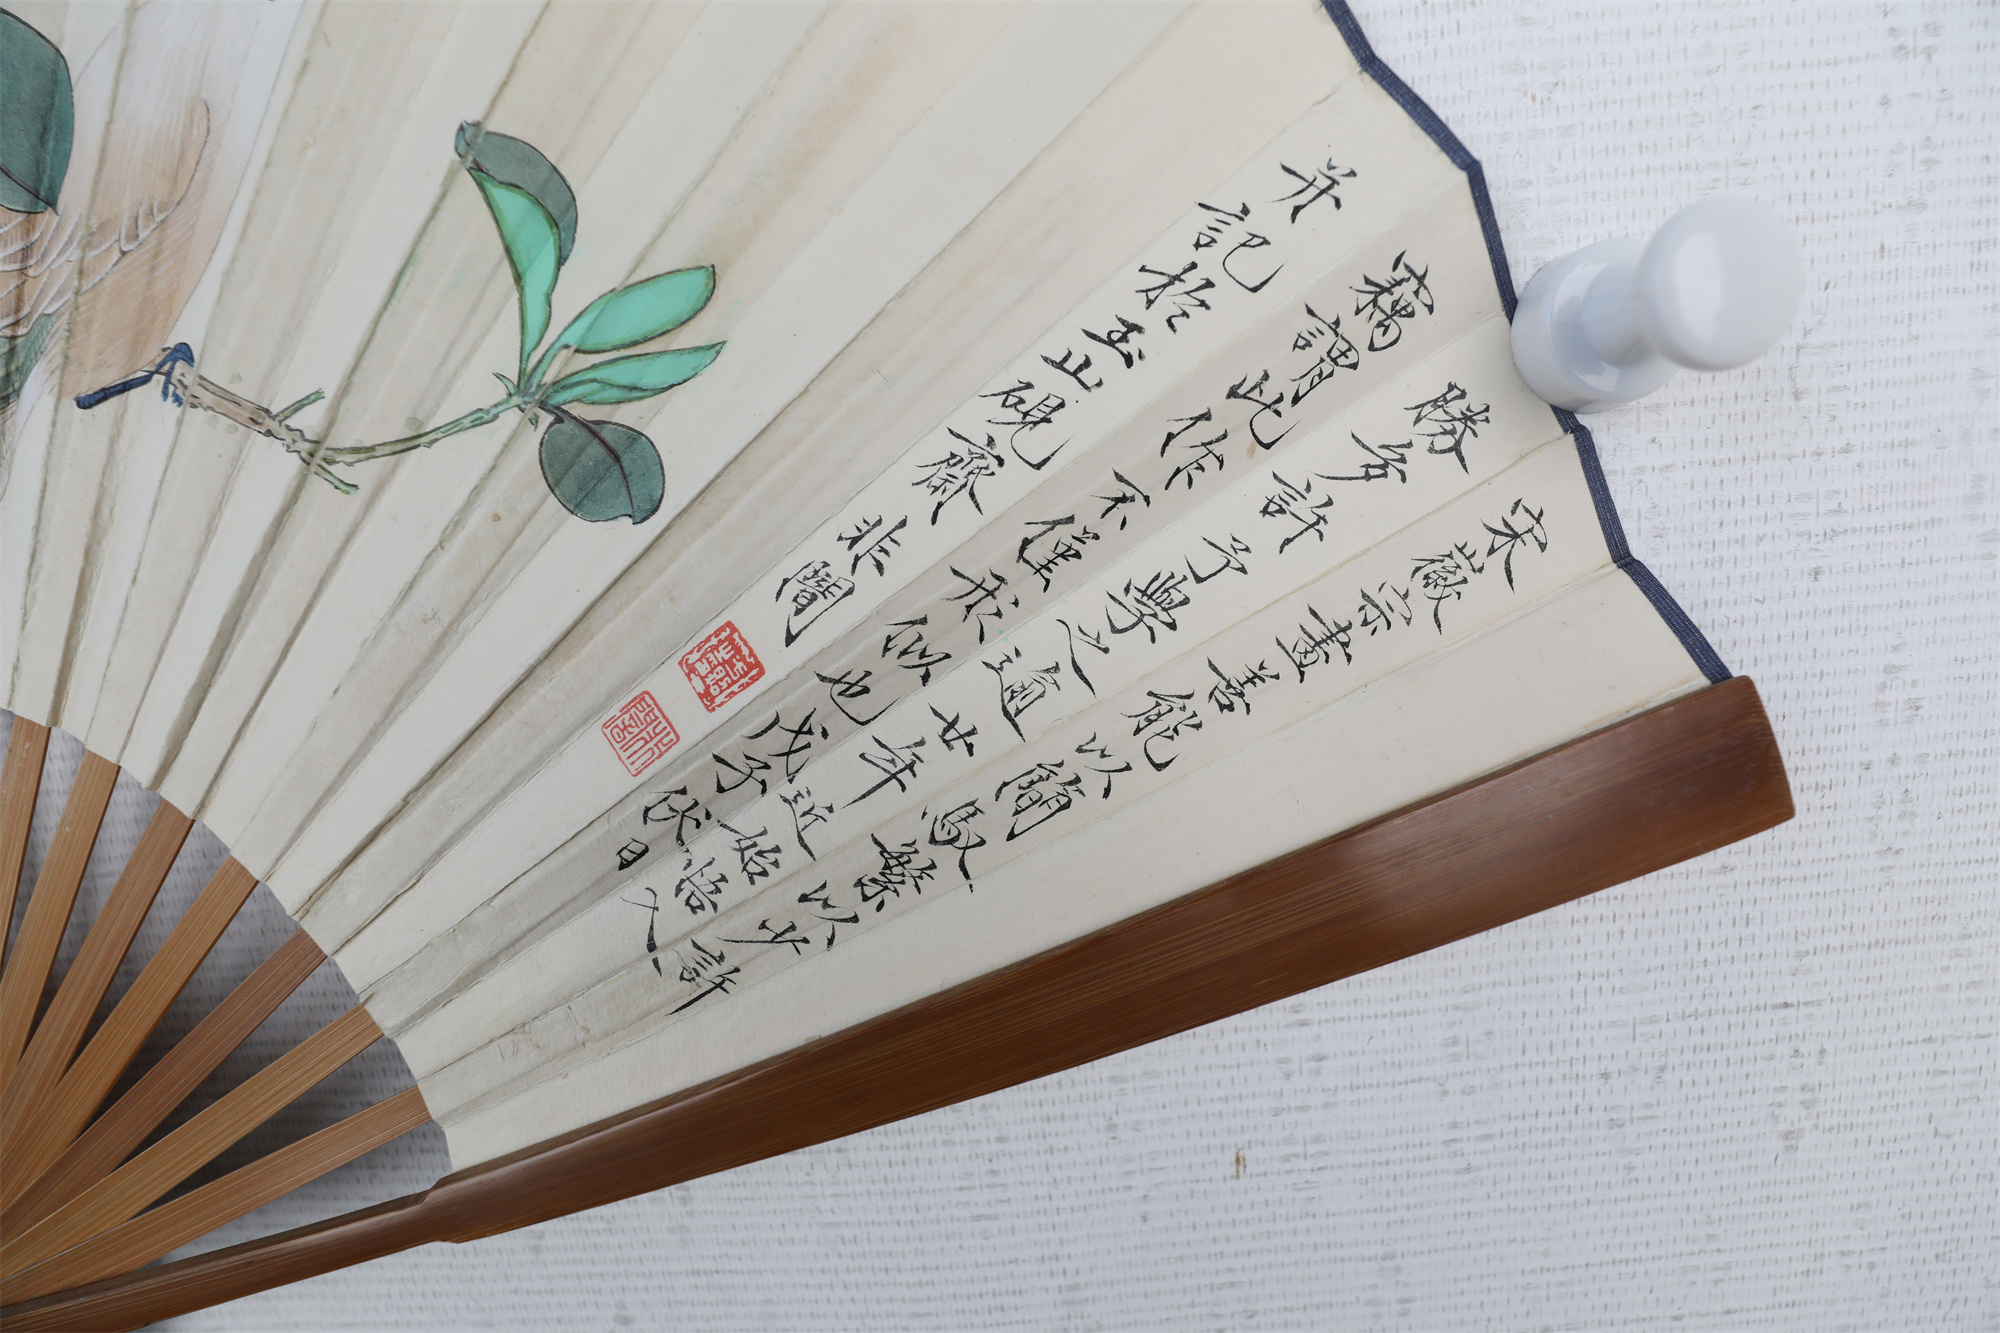 宋徽宗畫善能以簡馭繁以少許
勝多許予學之逾廿年近始悟入
竊謂此作不僅形似也戊子伏日
并記於玉山硯齋非闇